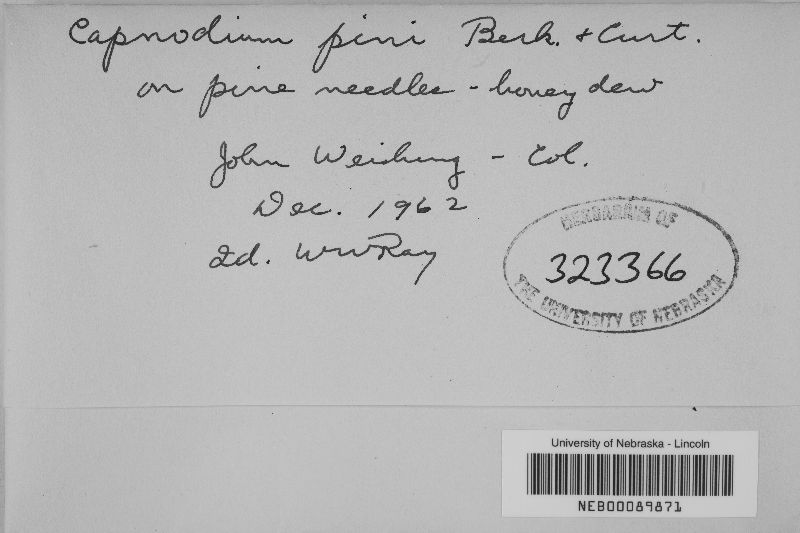 Capnodium pini Berk. & Curt.
on pine needles - honey dew
John Weihing - Col.
Dec. 1962
Id. WWRay
HERBARIUM OF
323366
THE UNIVERSITY OF NEBRASKA
University of Nebraska - Lincoln
NEB00089871